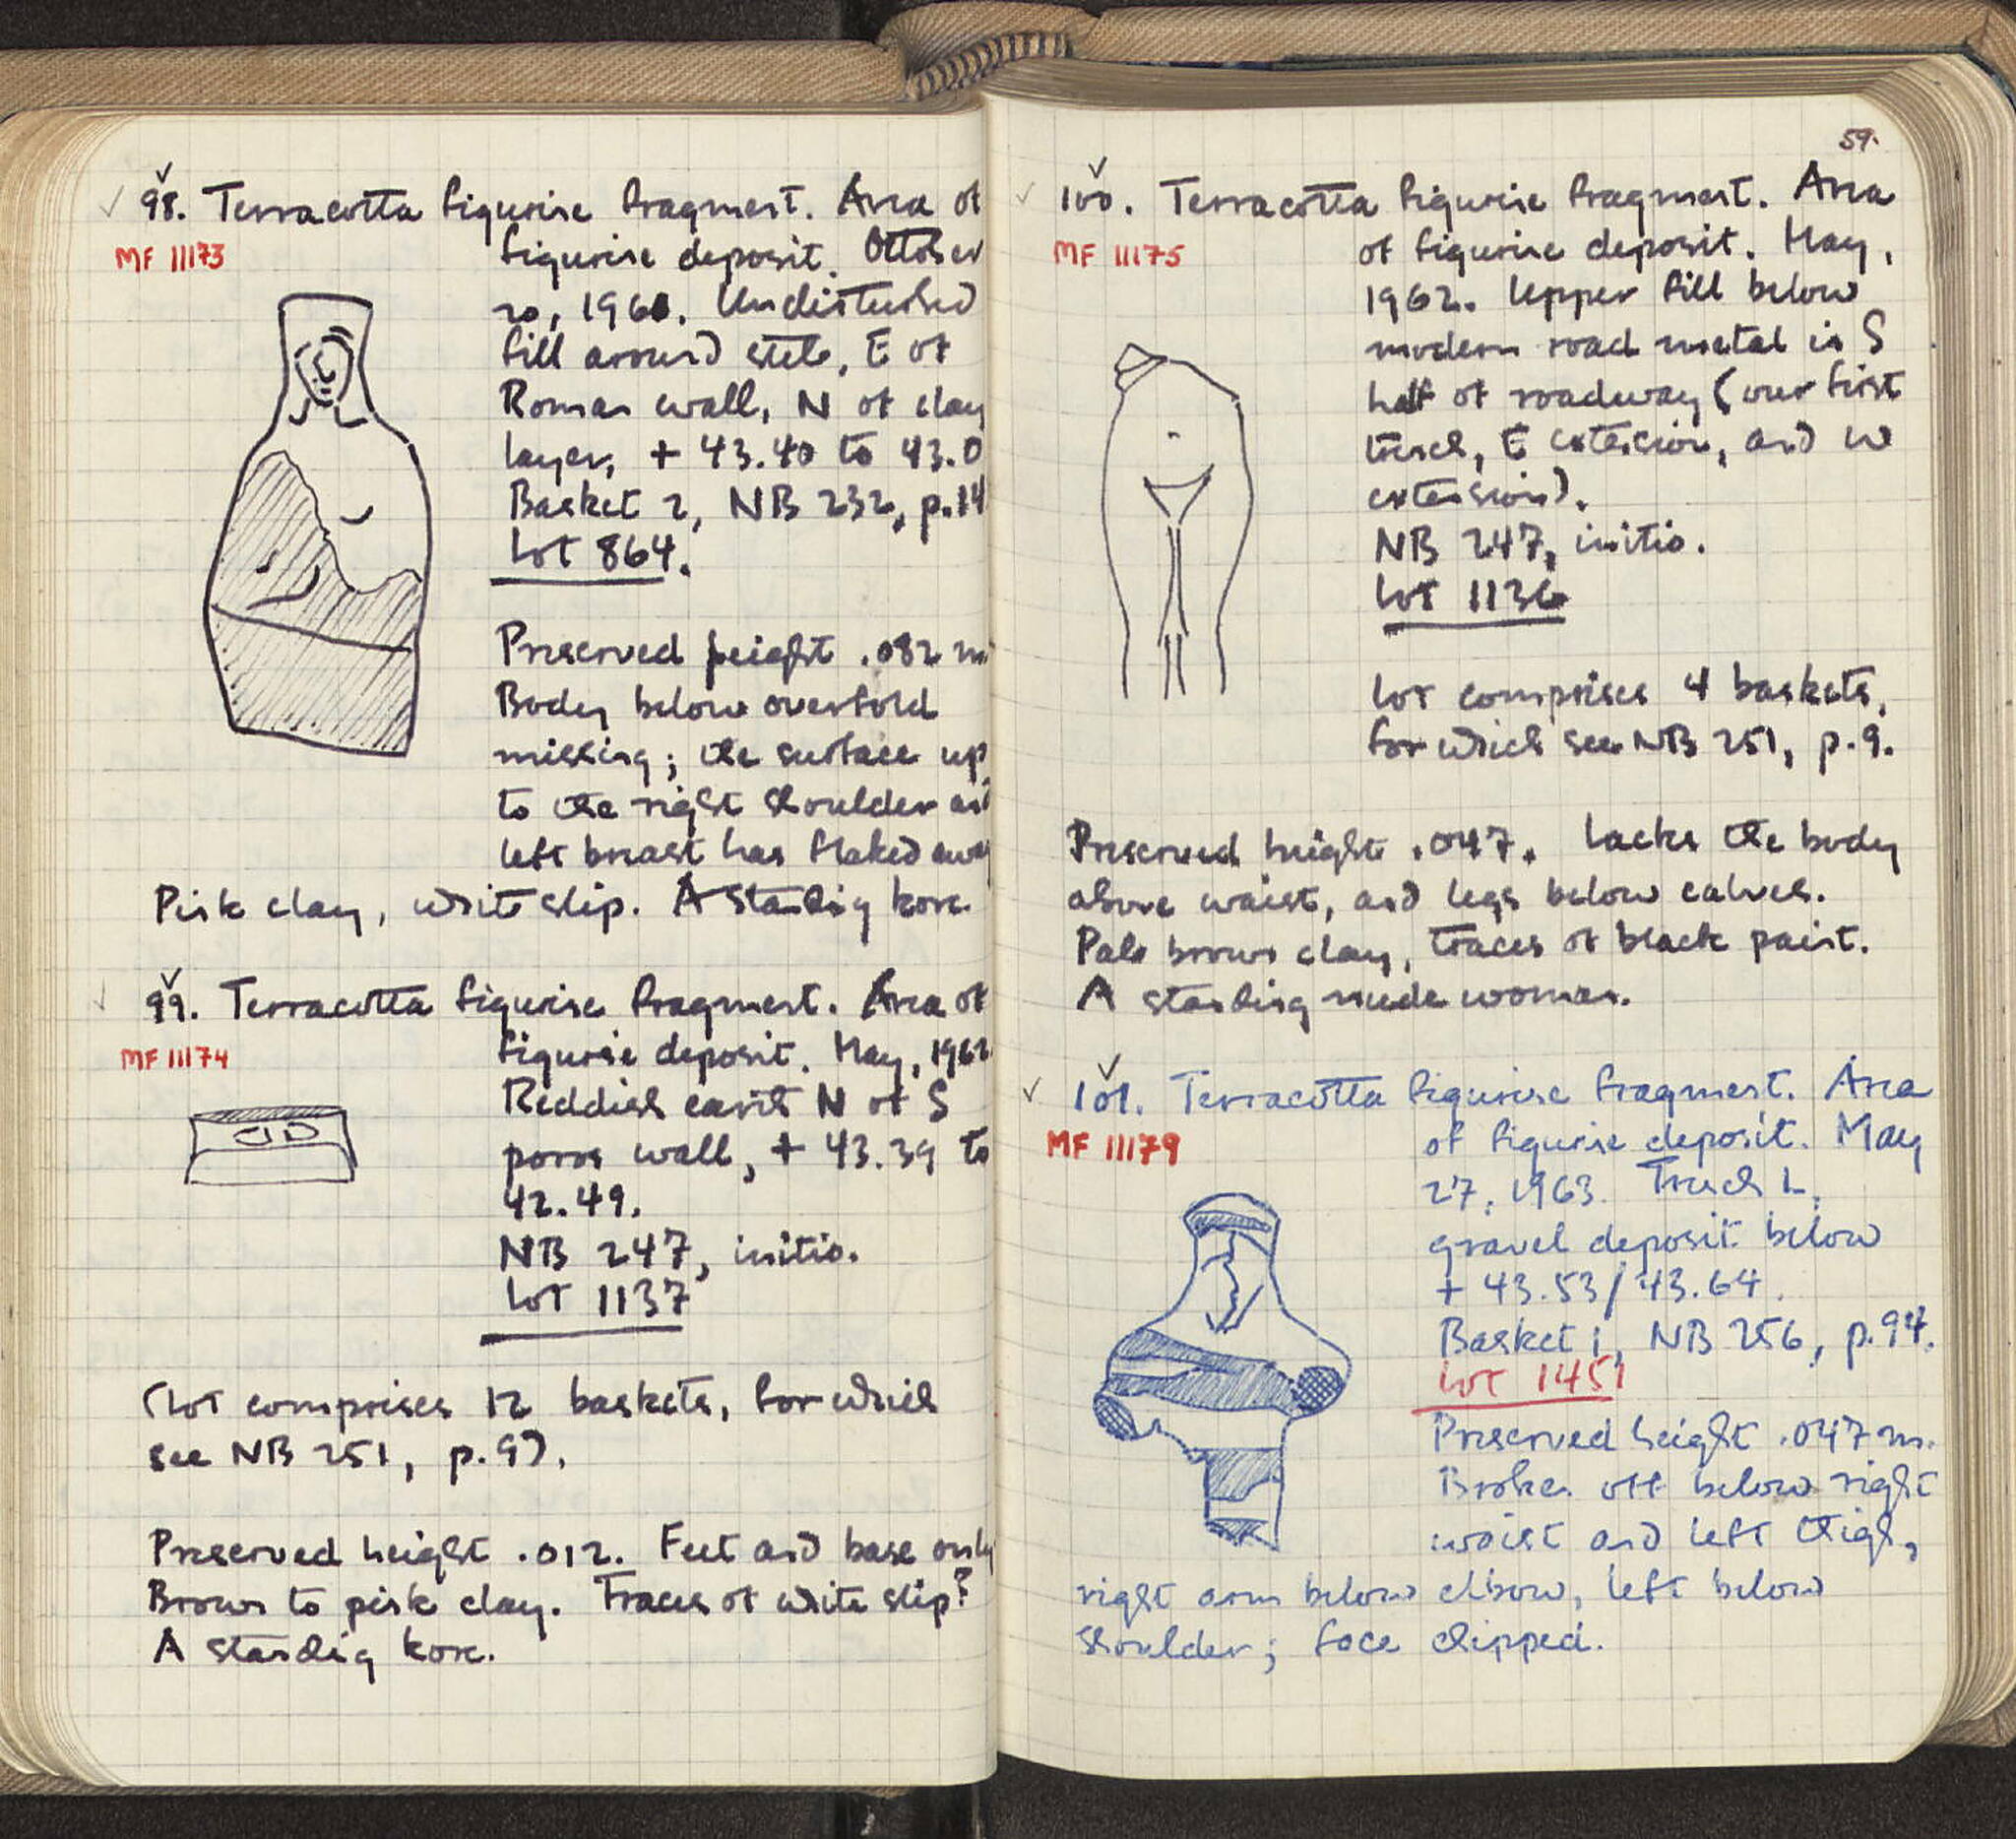 98. Terracotta figurine fragment. Area of
MF 11173
figurine deposit. October
20, 1961. Undisturbed
fill around stele, E of
Roman wall, N of clay
layer, + 43.40 to 43.0
Basket 2, NB 232, p.14
Lot 864.
Preserved height .082 m
Body below overfold
missing; the surface up
to the right shoulder and
left breast has flaked away
Pink clay, white slip. A standing kore.
99. Terracotta figurine fragment. Area of
MF 11174
figurine deposit. May, 1962
Reddish earth N of S
poros wall, + 43.39 to
42.49.
NB 247, initio.
Lot 1137
(Lot comprises 12 baskets, for which
see NB 251, p.9).
Preserved height .012. Feet and base only
Brown to pink clay. Traces of white slip?
A standing kore.
59.
100. Terracotta figurine fragment. Area
MF 11175
of figurine deposit. May,
1962. Upper fill below
modern road metal in S
half of roadway (our first
trench, E extension, and W
extension).
NB 247, initio.
Lot 1136
Lot comprises 4 baskets,
for which see NB 251, p.9.
Preserved height .047. Lacks the body
above waist, and legs below calves.
Pale brown clay, traces of black paint.
A standing nude woman.
101. Terracotta figurine fragment. Area
MF 11179
of figurine deposit. May
27, 1963. Trench L,
gravel deposit below
+ 43.53/43.64.
Basket 1, NB 256, p.94.
Lot 1451
Preserved height .047 m.
Broken off below right
waist and left thigh,
right arm below elbow, left below
shoulder; face chipped.